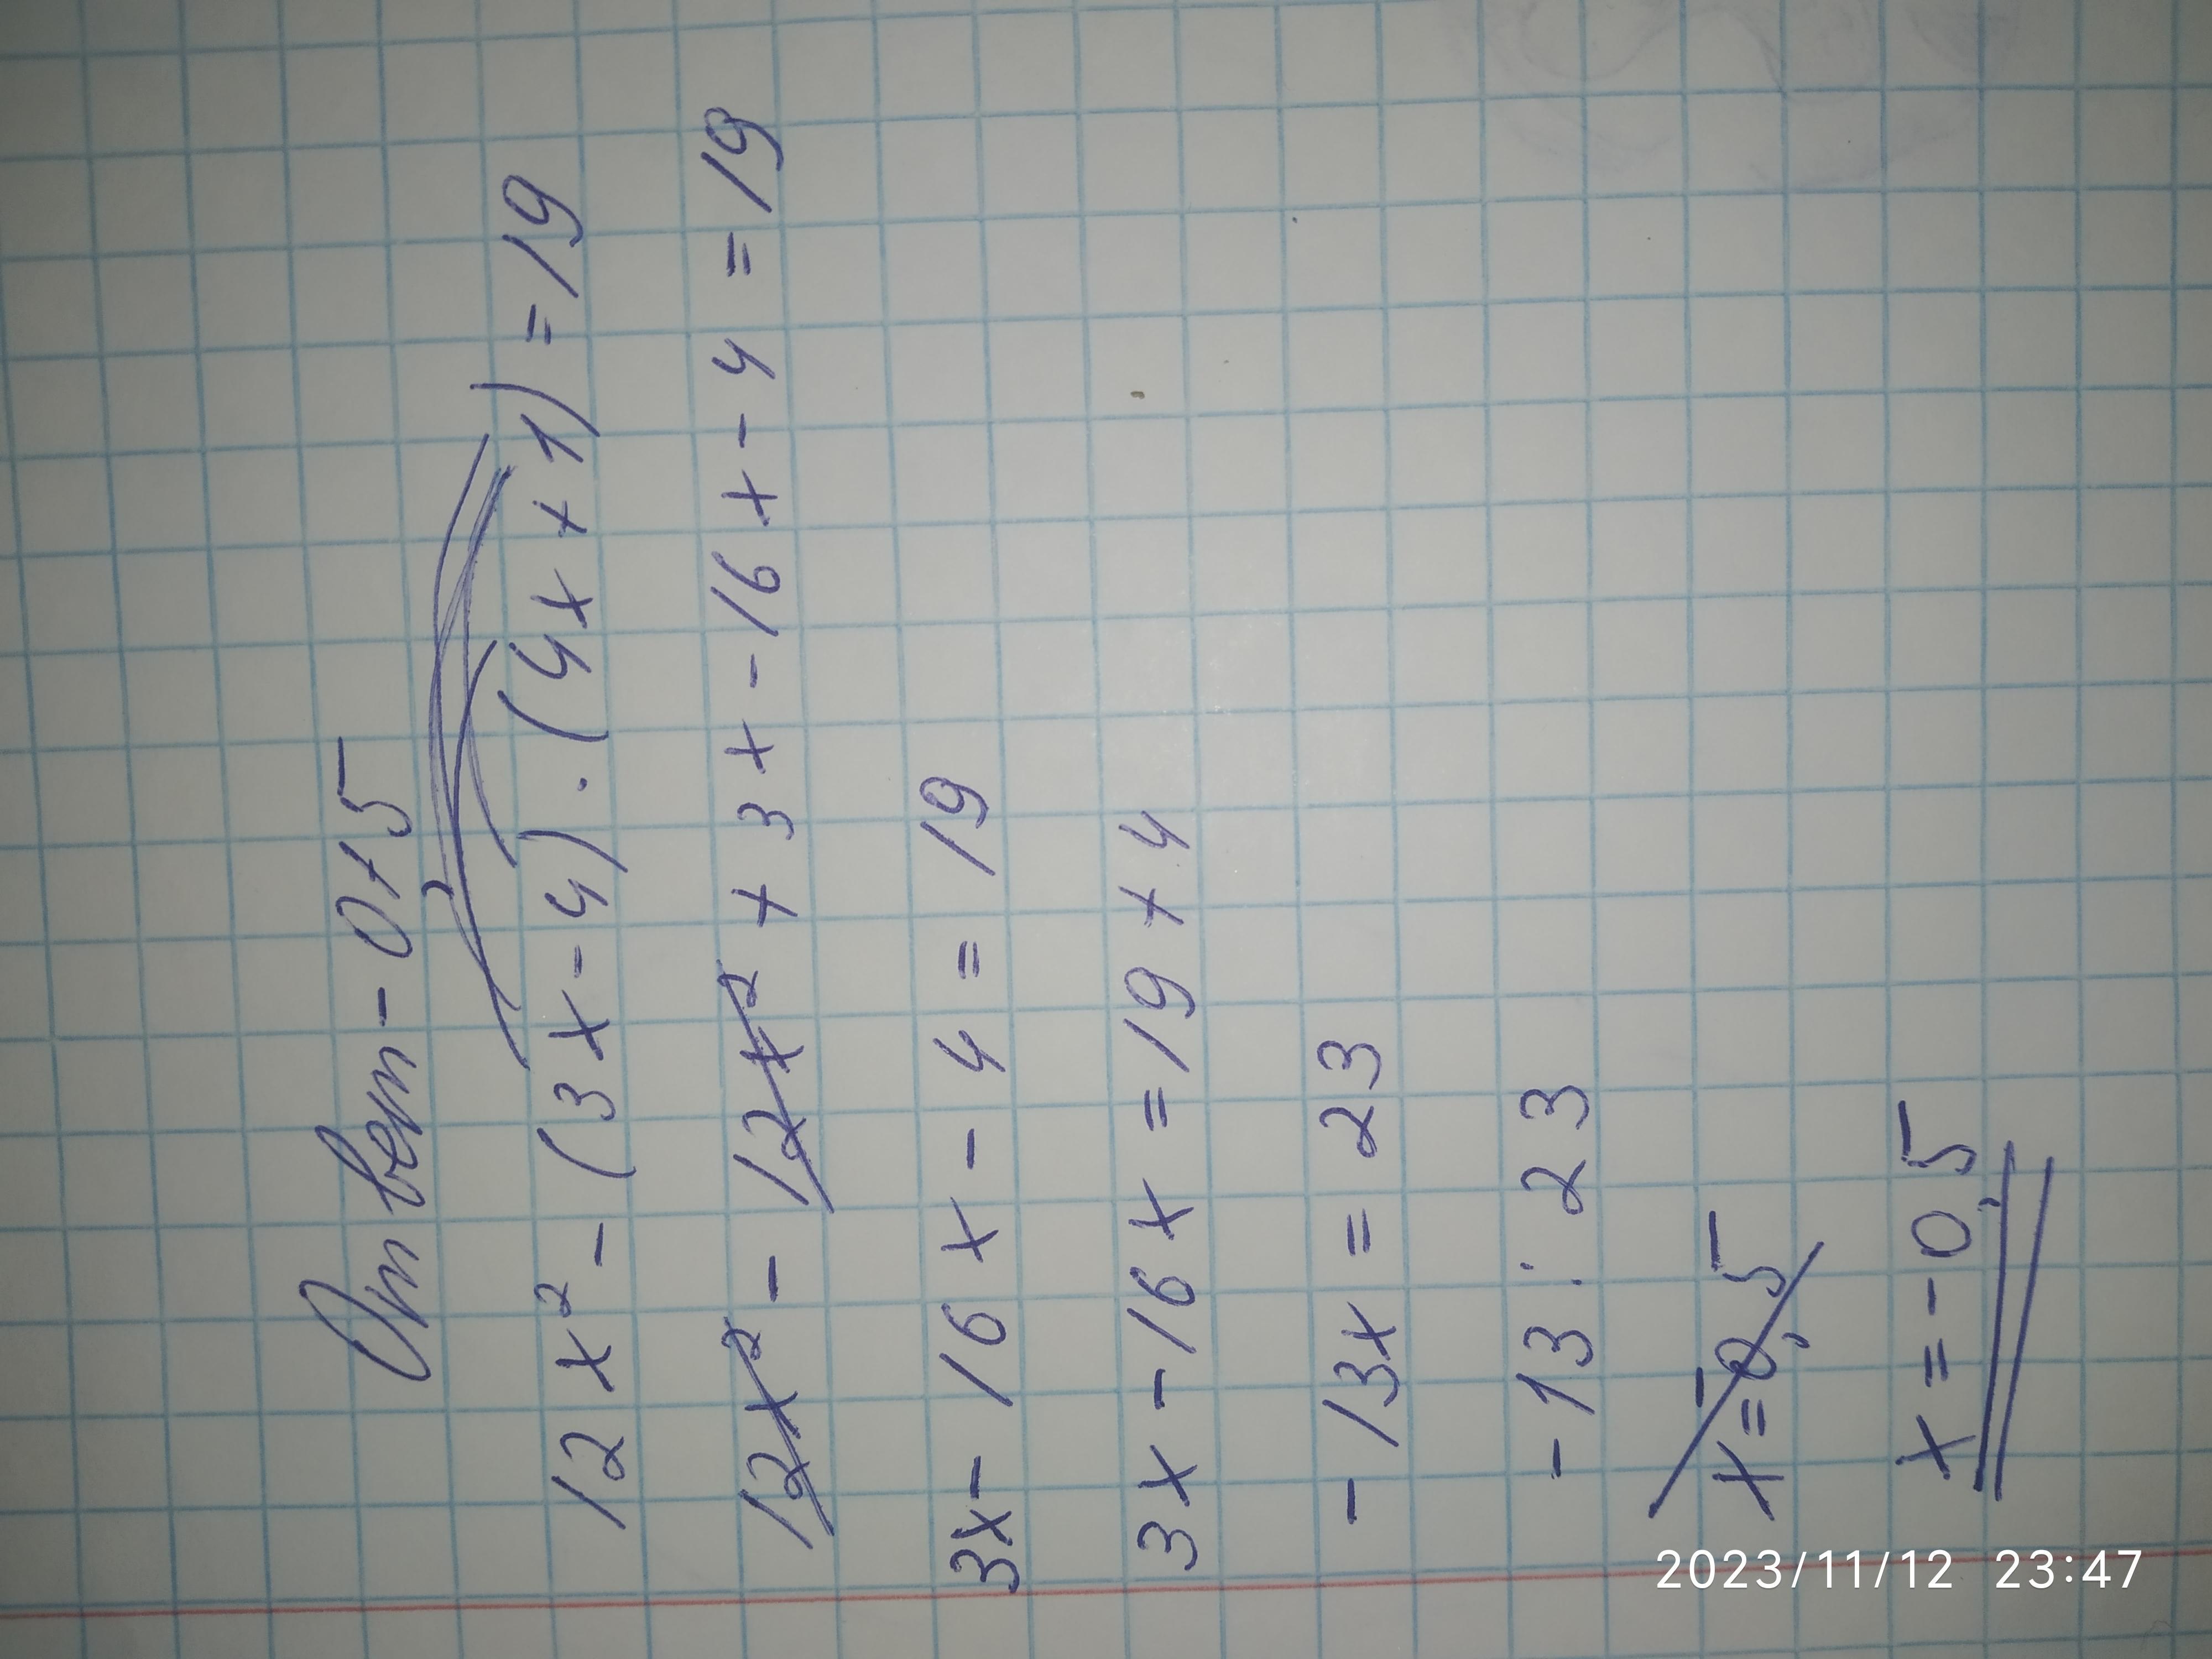 Ответ - 0,5
12x² - (3x - 4) · (4x + 1) = 19
12x² - 12x² + 3x - 16x - 4 = 19
3x - 16x - 4 = 19
3x - 16x = 19 + 4
- 13x = 23
- 13 : 23
x = - 0,5
x = - 0,5
2023/11/12 23:47